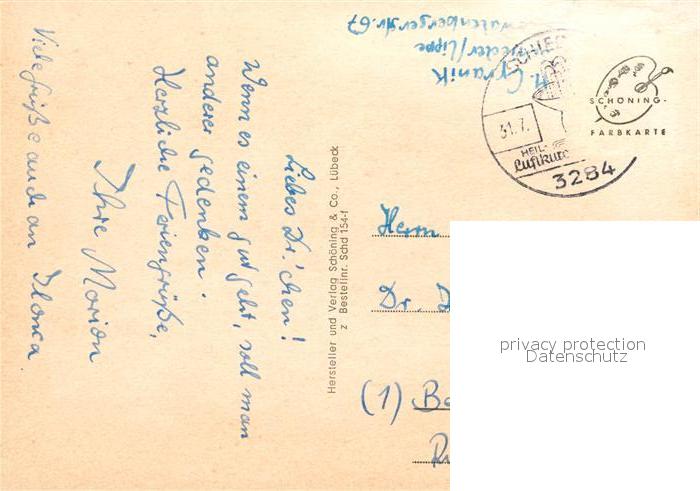 Liebes Dr.'chen!
Wenn es einem gut geht, soll man
anderer gedenken.
Herzliche Feriengrüße,
Ihre Marion
Viele Grüße auch an Ilona
Hersteller und Verlag Schöning & Co., Lübeck
z Bestellnr. Schd 154-f
H. Granik
Schieder/Lippe
str. 67
SCHIE
31.7.
HEIL-
Luftkur
3284
SCHÖNING-
FARBKARTE
Herrn
Dr.
(1) Be
privacy protection
Datenschutz